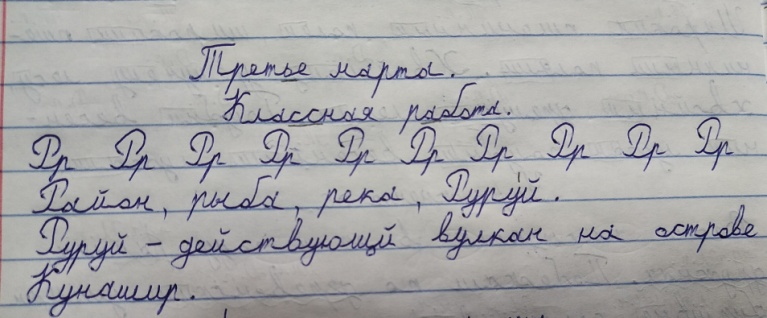 Третье марта.
Классная работа.
Рр Рр Рр Рр Рр Рр Рр Рр Рр Рр
Район, рыба, река, Руруй.
Руруй – действующй вулкан на острове
Кунашир.